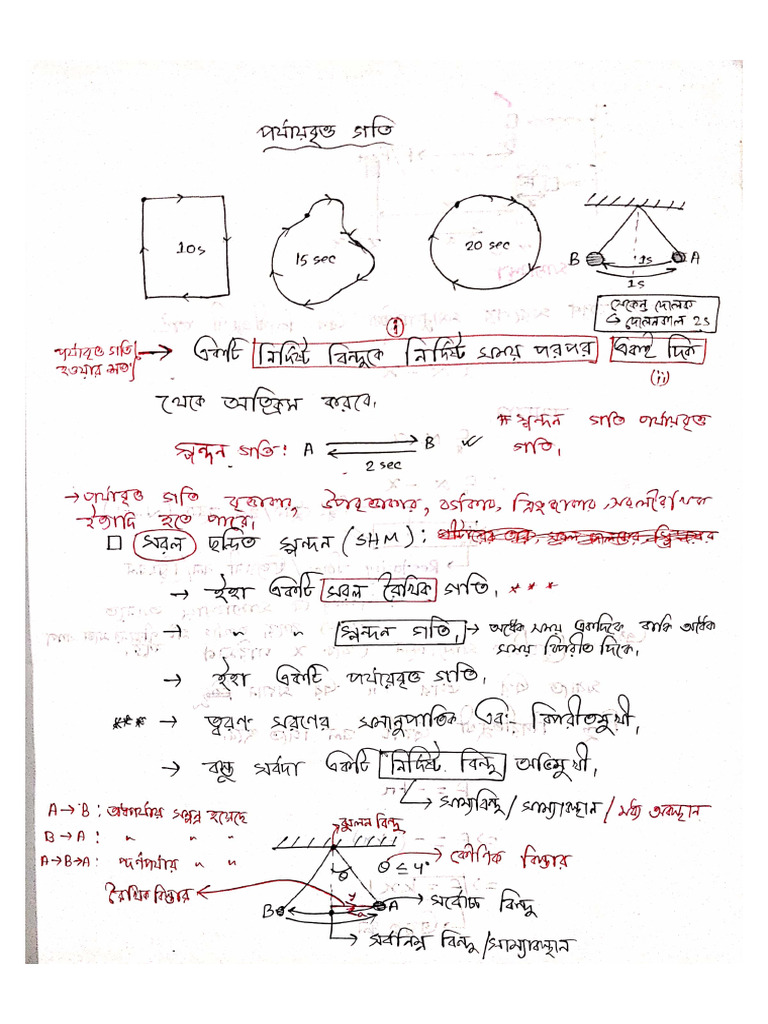 পর্যায়বৃত্ত গতি
10s
15 sec
20 sec
B 1s A
1s
সেকেন্ড দোলক
দোলনকাল 2s
(i)
পর্যাবৃত্ত গতি হওয়ার শর্ত → একটি নির্দিষ্ট বিন্দুকে নির্দিষ্ট সময় পরপর একই দিক
(ii)
থেকে অতিক্রম করবে।
* স্পন্দন গতি পর্যায়বৃত্ত গতি।
স্পন্দন গতি: A B
2 sec
→ পর্যাবৃত্ত গতি বৃত্তাকার, উপবৃত্তাকার, বর্গাকার, ত্রিভুজাকার, সরলরৈখিক
ইত্যাদি হতে পারে।
সরল ছন্দিত স্পন্দন (SHM):
→ ইহা একটি সরল রৈখিক গতি। ***
→ " " স্পন্দন গতি। → অর্ধেক সময় একদিকে বাকি অর্ধেক
সময় বিপরীত দিকে।
→ ইহা একটি পর্যায়বৃত্ত গতি।
*** → ত্বরণ সরণের সমানুপাতিক এবং বিপরীতমুখী।
→ বস্তু সর্বদা একটি নির্দিষ্ট বিন্দু অভিমুখী।
→ সাম্যবিন্দু/সাম্যাবস্থান/মধ্য অবস্থান
A→B: অর্ধপর্যায় সম্পন্ন হয়েছে
B→A: " " "
A→B→A: পূর্ণপর্যায় " "
ঝুলন বিন্দু
θ
θ ≤ 4° → কৌণিক বিস্তার
রৈখিক বিস্তার
B A → সর্বোচ্চ বিন্দু
→ সর্বনিম্ন বিন্দু/সাম্যাবস্থান